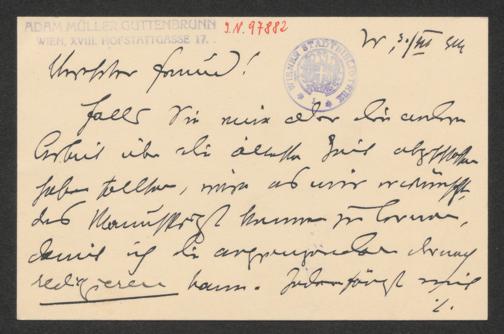 ADAM MÜLLER-GUTTENBRUNN
WIEN, XVIII. HOFSTATTGASSE 17.
J.N. 97882
WIENER STADTBIBLIOTHEK
W, 30/VI
Verehrter Freund!
Falls Sie nun oder die andere
Arbeit über die älteste Zeit abgeschlossen
haben sollten, wäre es mir erwünscht
das Manuskript kennen zu lernen,
damit ich die angrenzenden darnach
redigieren kann. Jedenfalls